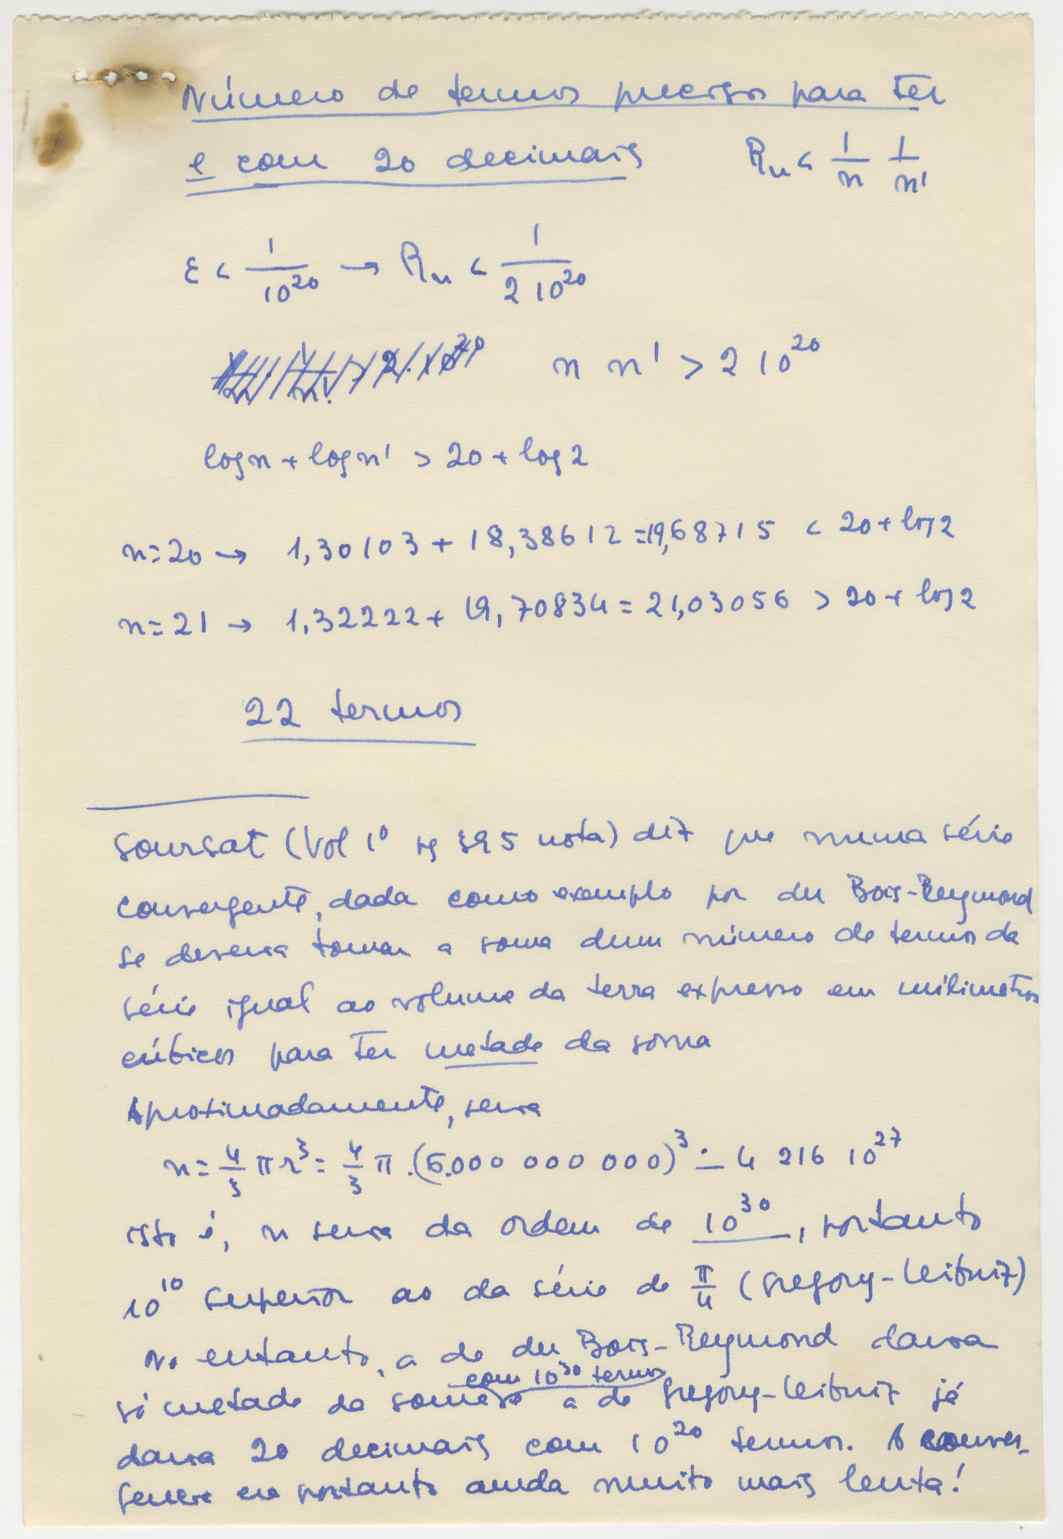 Número de termos precisos para ter
e com 20 decimais Rn < 1/n 1/n!
ε < 1/10^20 → Rn < 1/2 10^20
n n! > 2 10^20
log n + log n! > 20 + log 2
n=20 → 1,30103 + 18,38612 = 19,68715 < 20 + log 2
n=21 → 1,32222 + 19,70834 = 21,03056 > 20 + log 2
22 termos
Goursat (Vol 1º pg 395 nota) diz que numa série
convergente, dada como exemplo por du Bois-Reymond
se deveria tomar a soma dum número de termos da
série igual ao volume da terra expresso em milimetros
cúbicos para ter metade da soma
Aproximadamente, seria
n = 4/3 π r^3 = 4/3 π .(6.000 000 000)^3 ∸ 4 216 10^27
isto é, n seria da ordem de 10^30, portanto
10^10 superior ao da série de π/4 (Gregory-Leibniz)
No entanto, a de du Bois-Reymond daria
com 10^30 termos
só metade da soma e a de Gregory-Leibniz já
daria 20 decimais com 10^20 termos. A conver-
gencia era portanto ainda muito mais lenta!